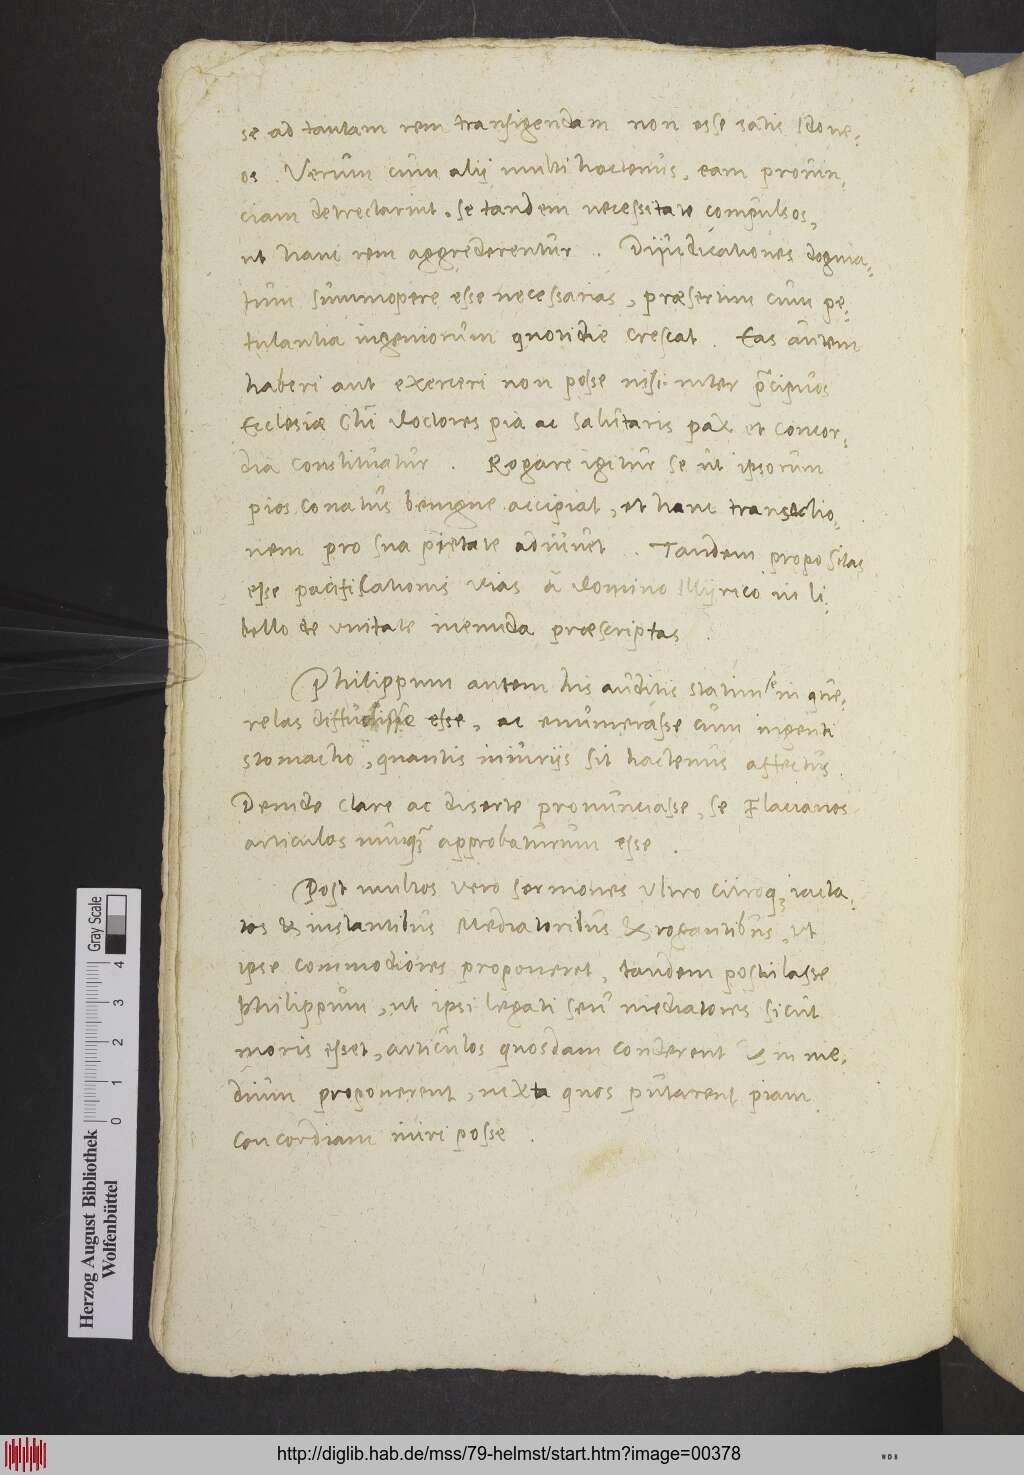 se ad tantam rem transigendam non esse satis Idone-
os. Verùm cum alij multi hactenus, eam provin-
ciam detrectarint, se tandem necessitate compulsos,
ut hanc rem aggrederentur. Dijudicationes dogma-
tum summopere esse necessarias, præsertim cum pe-
tulantia ingeniorum quotidie crescat. Eas autem
haberi aut exerceri non posse nisi inter p̄cipuos
Ecclesiæ Chr̄i doctores pia ac salutaris pax et concor-
dia constituatur. Rogare igitur se ut ipsorum
pios conatus benigne accipiat, et hanc transactio-
nem pro sua pietate adiuvet. Tandem propositas
esse pacificationis vias à domino Illyrico in li-
bello de unitate ineunda præscriptas.
Philippum autem his auditis statim se in que-
relas diffudisse esse, ac enumerasse cum ingenti
stomacho, quantis iniurijs sit hactenus affectus.
Deinde clare ac diserte pronunciasse, se Flacianos
articulos nunq̄ approbaturum esse.
Post multos vero sermones ultro citroq; iacta-
tos & instantibus Mediatoribus & rogantibus, ut
ipse commodiores proponeret, tandem postulasse
Philippum, ut ipsi legati seu mediatores sicut
moris esset, articulos quosdam conderent & in me-
dium proponerent, iuxta quos putarent piam
concordiam iniri posse.
Herzog August Bibliothek
Wolfenbüttel
0 1 2 3 4
Gray Scale
http://diglib.hab.de/mss/79-helmst/start.htm?image=00378
WDB